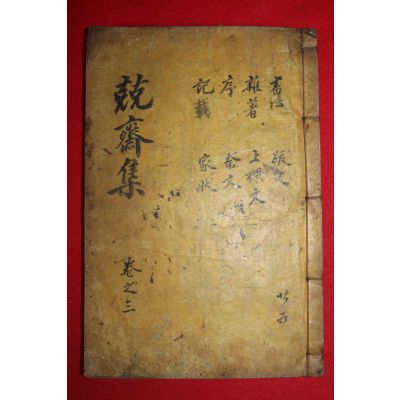 書 跋文
雜著 上樑文
序 祭文
記 家狀
兢齋集
卷之三
共五